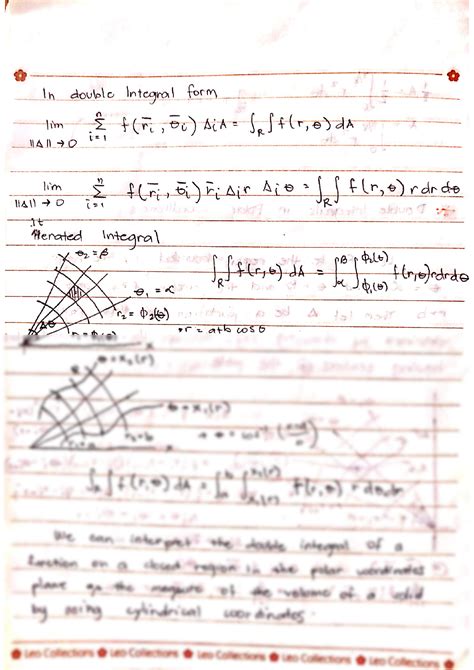 In double Integral form
lim ||Δ||→0 Σ_{i=1}^{n} f(r̄ᵢ, θ̄ᵢ) ΔᵢA = ∫_R∫ f(r, θ) dA
lim ||Δ||→0 Σ_{i=1}^{n} f(r̄ᵢ, θ̄ᵢ) r̄ᵢ Δᵢr Δᵢθ = ∫_R∫ f(r, θ) r dr dθ
Iterated Integral
θ₂ = β
θ₁ = α
∫_R∫ f(r, θ) dA = ∫_α^β ∫_{ϕ₁(θ)}^{ϕ₂(θ)} f(r,θ) r dr dθ
Δθ
r₂ = ϕ₂(θ)
r₁ = ϕ₁(θ)
r = a+b cos θ
θ = x₂(r)
R
θ = x₁(r)
r₂ = b
r₁ = a
x
∫_R∫ f(r, θ) dA = ∫_a^b ∫_{x₁(r)}^{x₂(r)} f(r, θ) r dθ dr
We can interpret the double integral of a
function on a closed region in the polar coordinates
plane as the measure of the volume of a solid
by using cylindrical coordinates.
Leo Collections Leo Collections Leo Collections Leo Collections